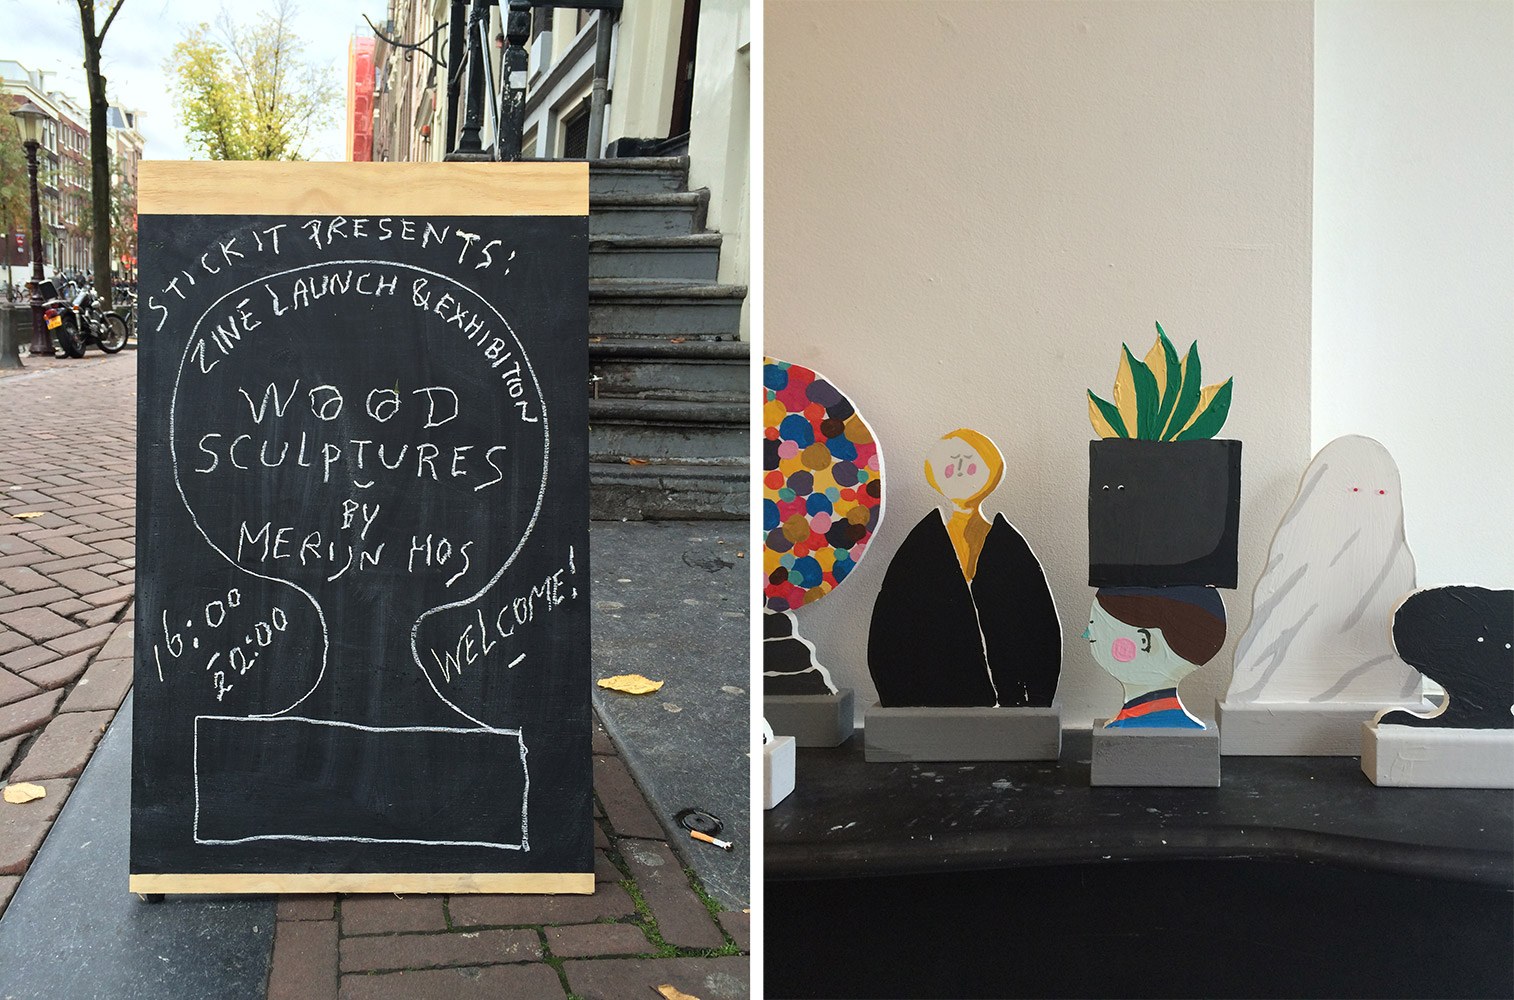 STICKIT PRESENTS:
ZINE LAUNCH & EXHIBITION
WOOD
SCULPTURES
BY
MERIJN HOS
16:00
22:00
WELCOME!